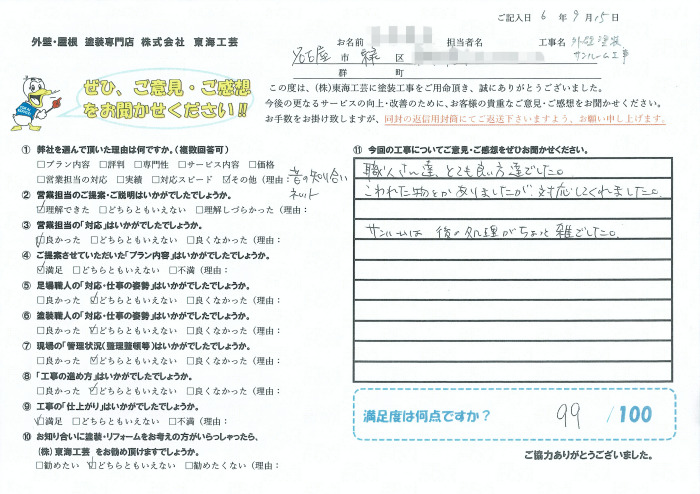 ご記入日 6 年 9 月 15 日
外壁・屋根 塗装専門店 株式会社 東海工芸
お名前 担当者名 工事名 外壁塗装
サンルーム工事
名古屋 市 緑 区
群 町
ぜひ、ご意見・ご感想
をお聞かせください!!
この度は、(株)東海工芸に塗装工事をご用命頂き、誠にありがとうございました。
今後の更なるサービスの向上・改善のために、お客様の貴重なご意見・ご感想をお聞かせください。
お手数をお掛け致しますが、同封の返信用封筒にてご返送下さいますよう、お願い申し上げます。
① 弊社を選んで頂いた理由は何ですか。(複数回答可)
□プラン内容 □評判 □専門性 □サービス内容 □価格
□営業担当の対応 □実績 □対応スピード ☑その他(理由:昔の知り合い
ネット
② 営業担当のご提案・ご説明はいかがでしたでしょうか。
☑理解できた □どちらともいえない □理解しづらかった(理由:
③ 営業担当の「対応」はいかがでしたでしょうか。
☑良かった □どちらともいえない □良くなかった(理由:
④ ご提案させていただいた「プラン内容」はいかがでしたでしょうか。
☑満足 □どちらともいえない □不満(理由:
⑤ 足場職人の「対応・仕事の姿勢」はいかがでしたでしょうか。
□良かった ☑どちらともいえない □良くなかった(理由:
⑥ 塗装職人の「対応・仕事の姿勢」はいかがでしたでしょうか。
□良かった ☑どちらともいえない □良くなかった(理由:
⑦ 現場の「管理状況(整理整頓等)はいかがでしたでしょうか。
□良かった ☑どちらともいえない □良くなかった(理由:
⑧ 「工事の進め方」はいかがでしたでしょうか。
□良かった ☑どちらともいえない □良くなかった(理由:
⑨ 工事の「仕上がり」はいかがでしたでしょうか。
☑満足 □どちらともいえない □不満(理由:
⑩ お知り合いに塗装・リフォームをお考えの方がいらっしゃったら、
(株)東海工芸 をお勧め頂けますでしょうか。
□勧めたい ☑どちらともいえない □勧めたくない(理由:
⑪ 今回の工事についてご意見・ご感想をぜひお聞かせください。
職人さん達、とても良い方達でした。
こわれた物とかありましたが、対応してくれました。
サンルームは 後の処理がちょっと雑でした。
満足度は何点ですか? 99 /100
ご協力ありがとうございました。